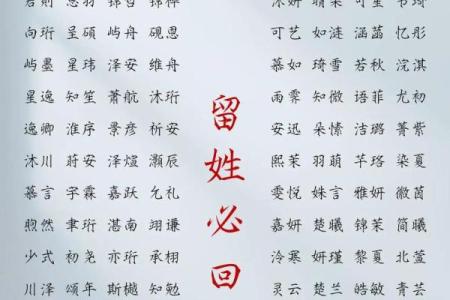 向珩 呈硕 屿舟 砚思
屿墨 星玮 泽安 维舟
星逸 知笙 萧航 沐珩
逸卿 淮序 景彦 祈安
沐川 莳安 泽煊 灏辰
慕言 宇霖 嘉跃 允礼
煦然 聿珩 湛南 翊谦
少弍 初尧 亦珩 承栩
川泽 颂年 斯樾 知勉
留
姓
必
回
可艺 如涟 涵菡 忆彤
慕如 琦雪 若秋 浣淇
雨霏 知微 语菲 尤初
安迅 朵愫 洁璐 菁紫
熙茉 羽萌 芊珞 染夏
雯悦 姝言 雅妍 微茵
嘉妍 楚曦 锦茉 简曦
泠寒 妍瑾 黎夏 北萱
灵云 楚兰 皓敏 青芸